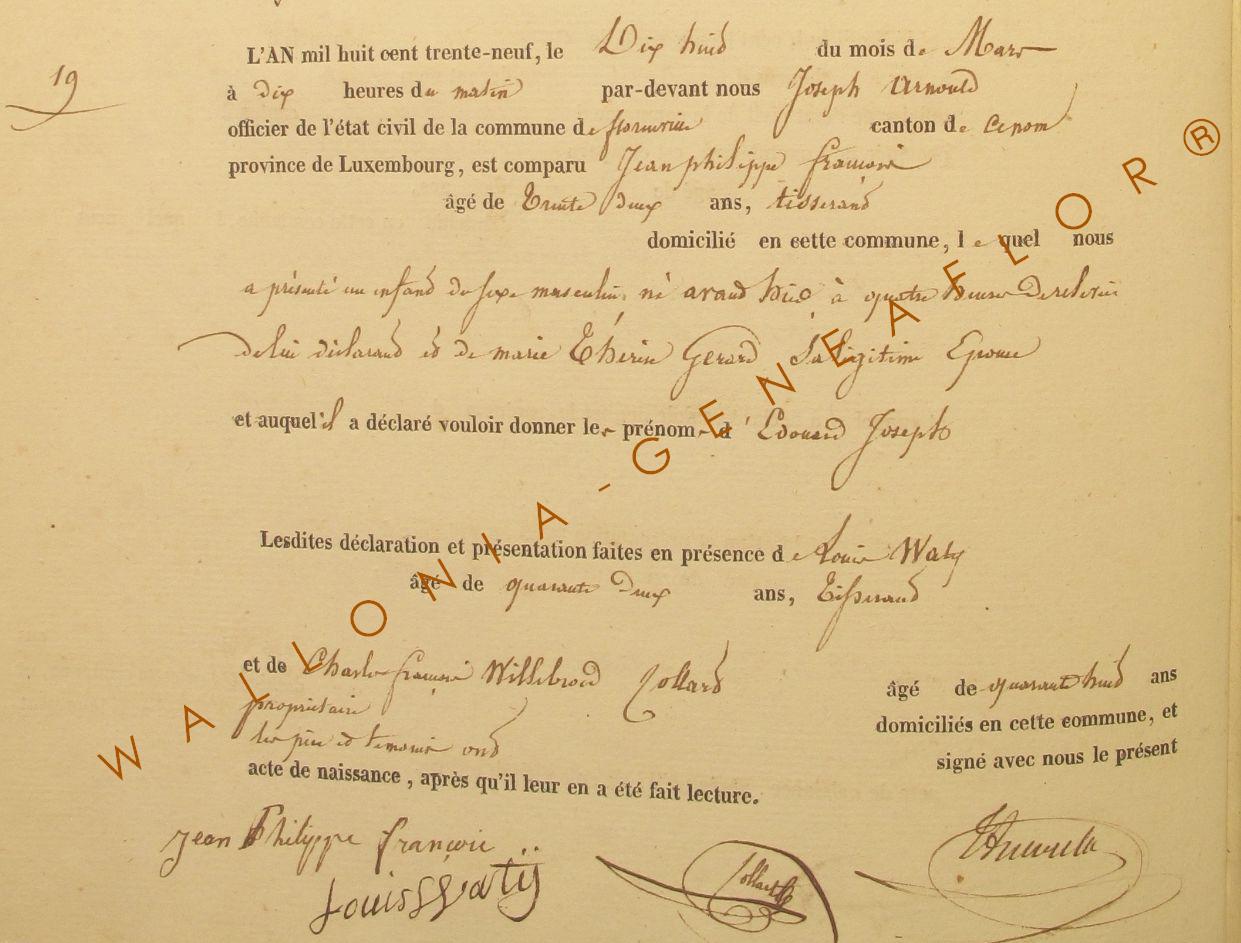 19
L'AN mil huit cent trente-neuf, le Dix huit du mois de Mars
à dix heures du matin par-devant nous Joseph Arnould
officier de l'état civil de la commune de florenville canton de
province de Luxembourg, est comparu Jean philippe françois
âgé de Trente Deux ans, tisserand
domicilié en cette commune, lequel nous
a présenté un enfant du sexe masculin, né avant hier à quatre heures De relevée
de lui déclarant et de marie Thérèse Gerard Sa légitime Epouse
et auquel il a déclaré vouloir donner les prénoms d'Edouard Joseph
Lesdites déclaration et présentation faites en présence de Louis Waty
âgé de quarante Deux ans, Tisserand
et de Charles françois Willebrord Collard âgé de quarante huit ans
propriétaire domiciliés en cette commune, et
les père et temoins ont signé avec nous le présent
acte de naissance, après qu'il leur en a été fait lecture.
Jean Philippe françois
Louis Watÿ
Collard
WALLONIA-GENEAFLOR®